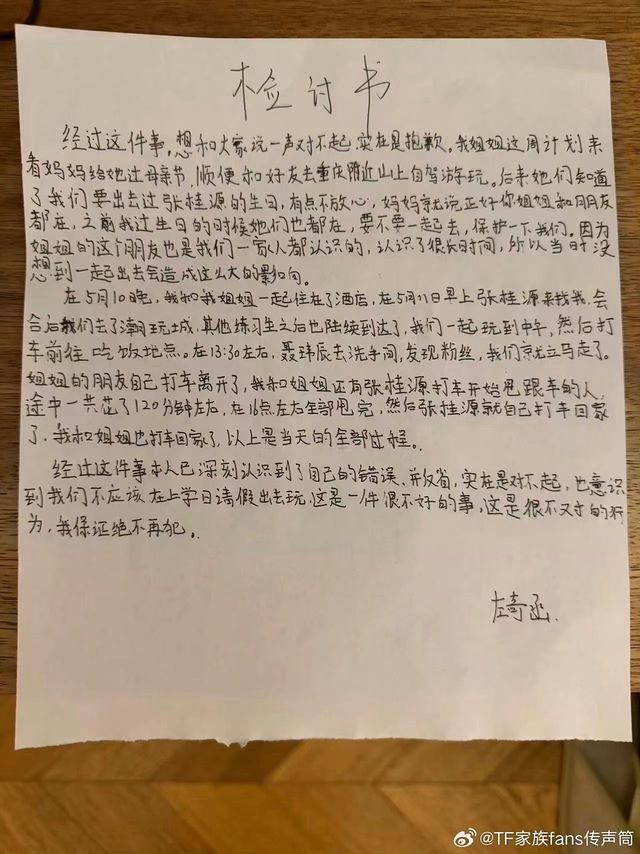 检讨书
经过这件事,想和大家说一声对不起,实在是抱歉。我姐姐这周计划来
看妈妈给她过母亲节,顺便和好友去重庆附近山上自驾游玩。后来她们知道
了我们要出去过张桂源的生日,有点不放心,妈妈就说正好你姐姐和朋友
都在,之前我过生日的时候她们也都在,要不要一起去,保护一下我们。因为
姐姐的这个朋友也是我们一家人都认识的,认识了很长时间,所以当时没
想到一起出去会造成这么大的影响。
在5月10晚,我和我姐姐一起住在了酒店,在5月11日早上张桂源来找我,会
合后我们去了潮玩城,其他练习生之后也陆续到达了,我们一起玩到中午,然后打
车前往吃饭地点。在13:30左右,聂玮辰去洗手间,发现粉丝,我们就立马走了。
姐姐的朋友自己打车离开了,我和姐姐还有张桂源打车开始甩跟车的人,
途中一共花了120分钟左右,在16点左右全部甩完,然后张桂源就自己打车回家
了,我和姐姐也打车回家了,以上是当天的全部过程。
经过这件事本人已深刻认识到了自己的错误、并反省,实在是对不起,也意识
到我们不应该在上学日请假出去玩,这是一件很不好的事,这是很不对的行
为,我保证绝不再犯。
左奇函.
@TF家族fans传声筒